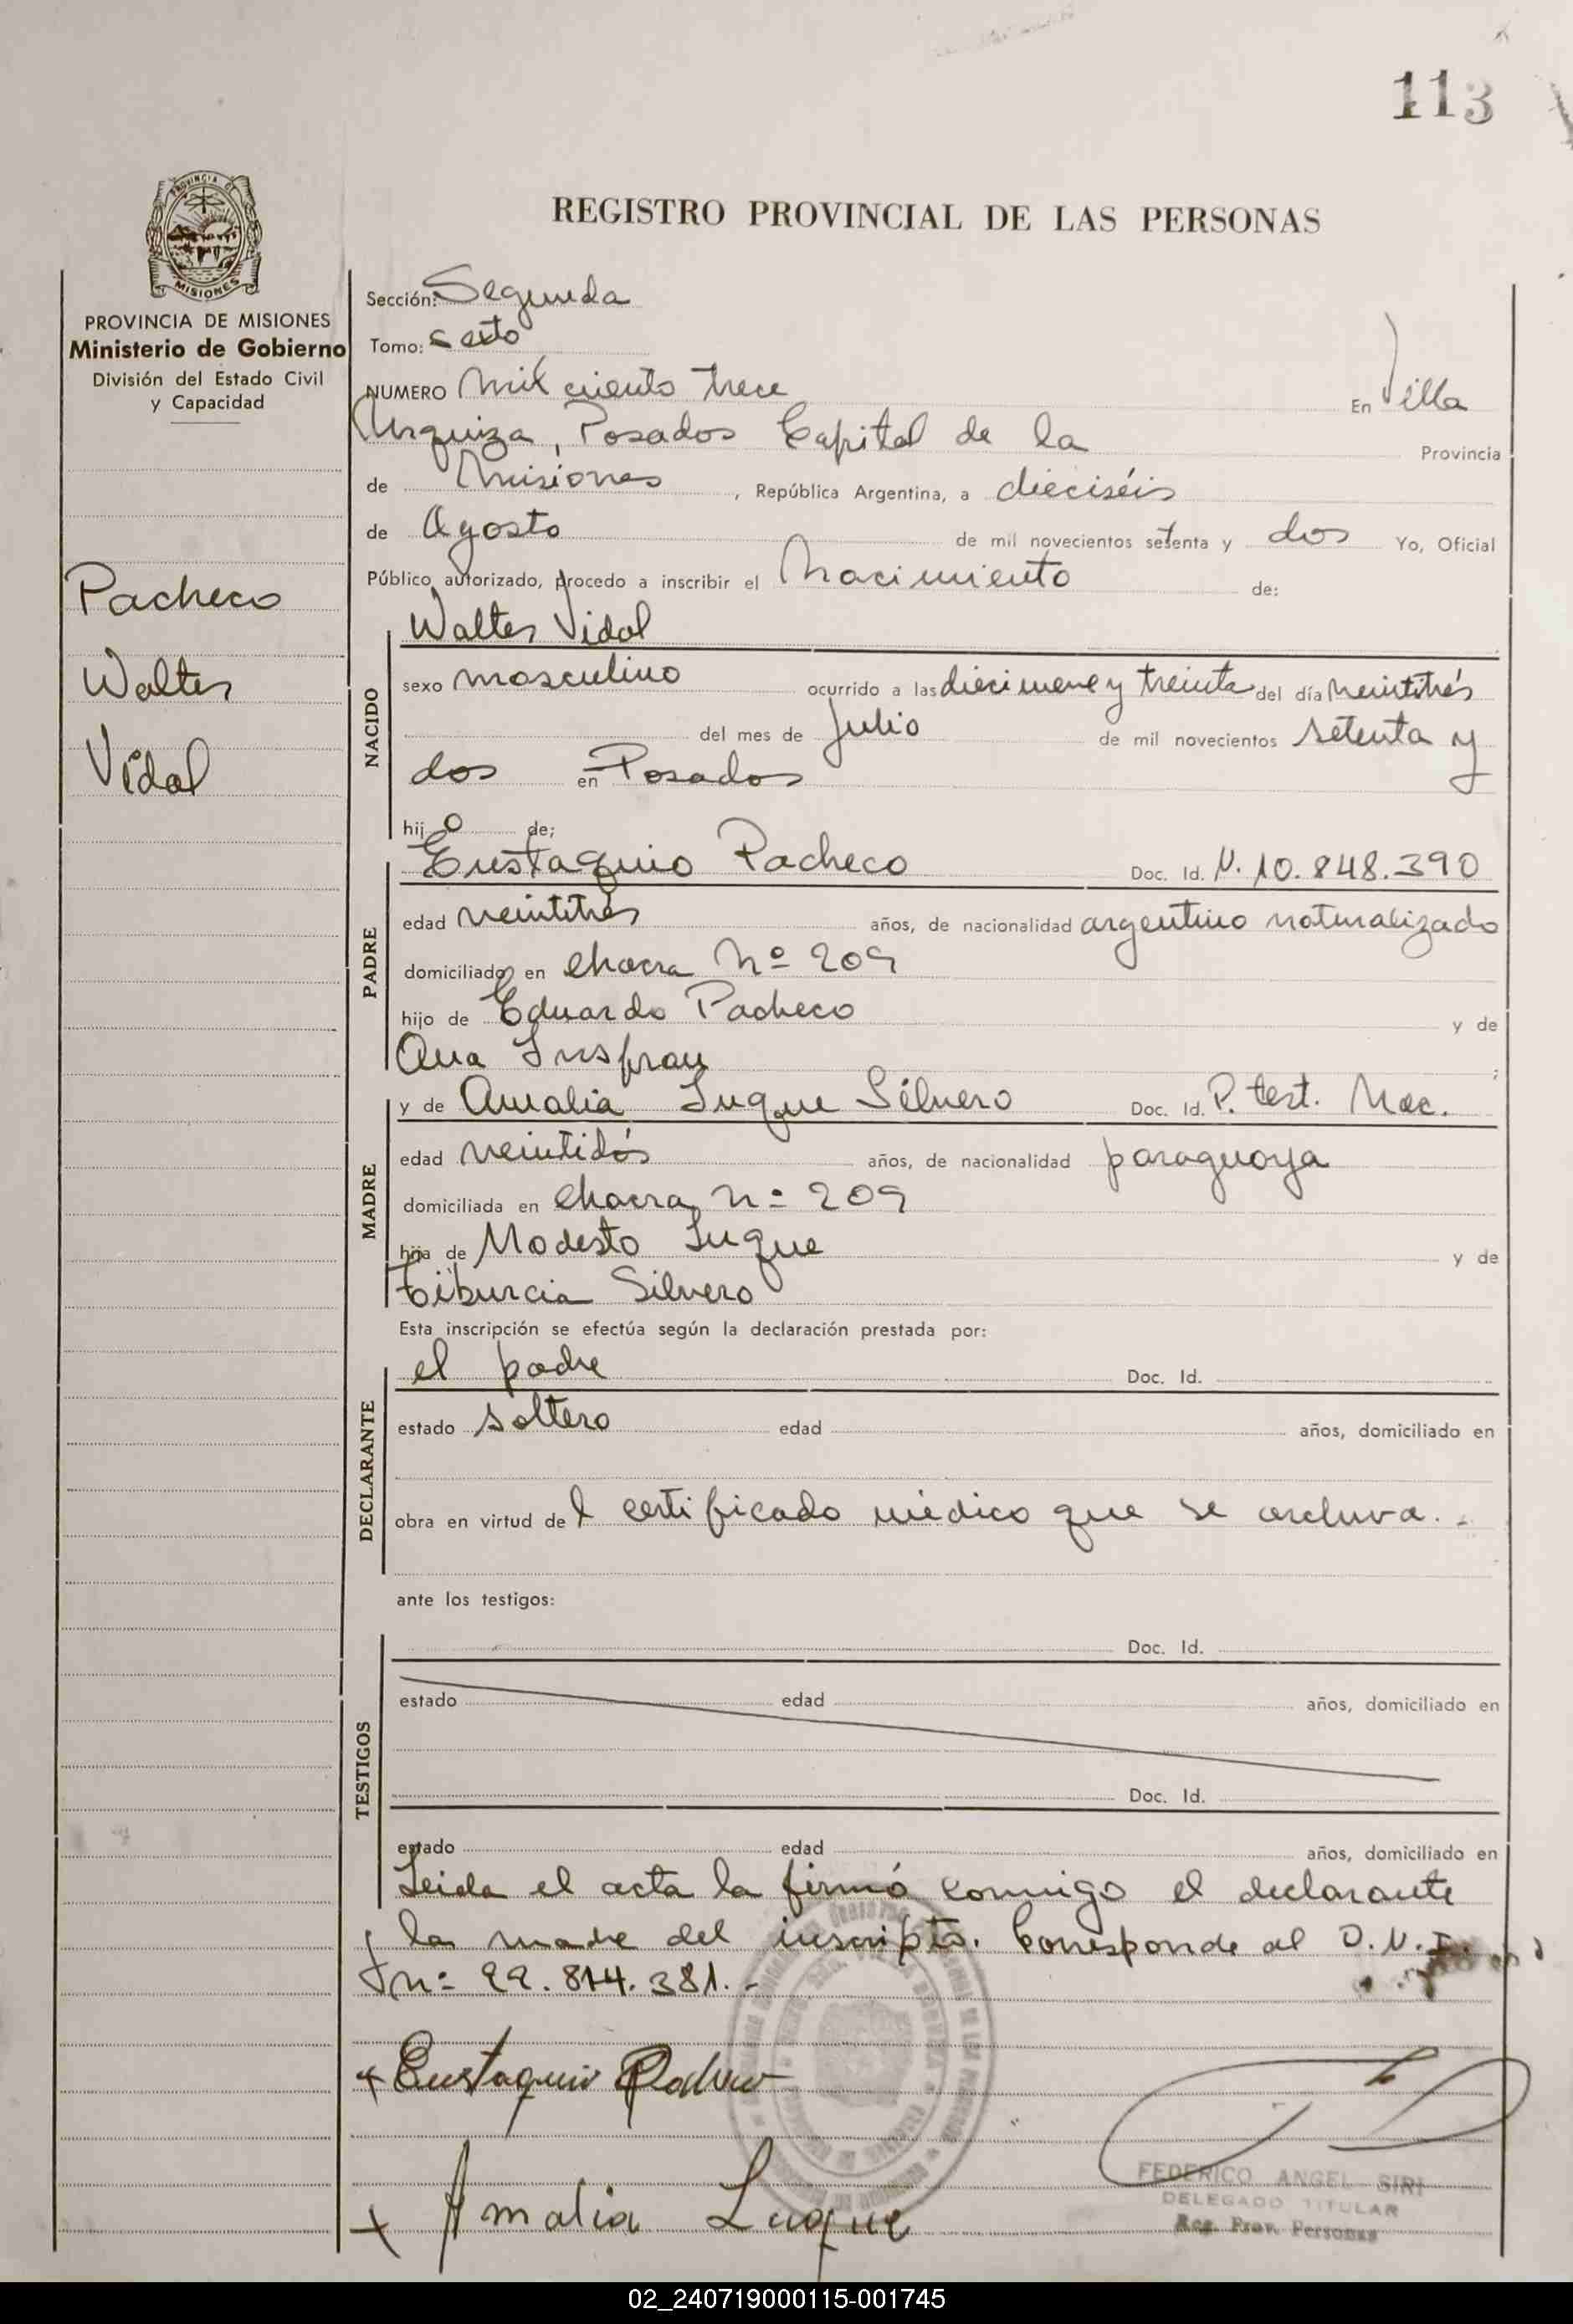 113
REGISTRO PROVINCIAL DE LAS PERSONAS
PROVINCIA DE MISIONES
MISIONES
PROVINCIA DE MISIONES
Ministerio de Gobierno
División del Estado Civil
y Capacidad
Pacheco
Walter
Vidal
Sección: Segunda
Tomo: sexto
NUMERO Mil ciento trece En Villa
Urquiza, Posadas Capital de la Provincia
de Misiones, República Argentina, a dieciséis
de Agosto de mil novecientos setenta y dos Yo, Oficial
Público autorizado, procedo a inscribir el Nacimiento de:
NACIDO
Walter Vidal
sexo masculino ocurrido a las diecinueve y treinta del día veintitrés
del mes de Julio de mil novecientos setenta y
dos en Posadas
hijo de;
PADRE
Eustaquio Pacheco Doc. Id. N. 10.848.390
edad veintitrés años, de nacionalidad argentino naturalizado
domiciliado en chacra Nº 209
hijo de Eduardo Pacheco y de
Ana Insfran;
MADRE
y de Amalia Luque Silvero Doc. Id. P. test. Nac.
edad veintidós años, de nacionalidad paraguaya
domiciliada en chacra nº 209
hija de Modesto Luque y de
Tiburcia Silvero
Esta inscripción se efectúa según la declaración prestada por:
DECLARANTE
el padre Doc. Id.
estado soltero edad años, domiciliado en
obra en virtud del certificado médico que se archiva.-
ante los testigos:
TESTIGOS
Doc. Id.
estado edad años, domiciliado en
Doc. Id.
estado edad años, domiciliado en
Leida el acta la firmó conmigo el declarante
y la madre del inscripto. Corresponde al D.N.I.
nº 22.814.381.-
Eustaquio Pacheco
Amalia Luque
FEDERICO ANGEL SIRI
DELEGADO TITULAR
Reg. Prov. Personas
02_240719000115-001745